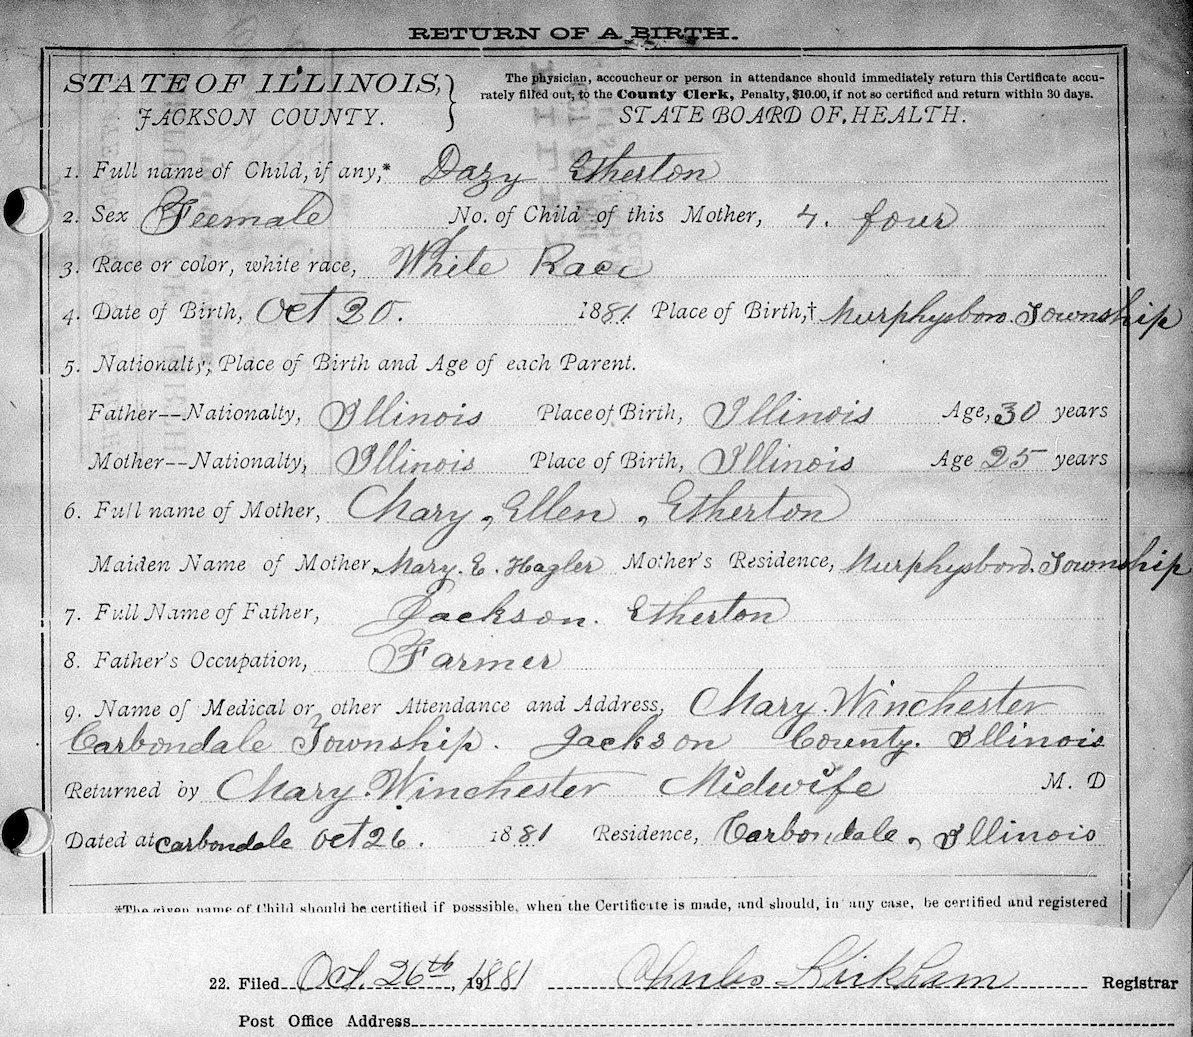 RETURN OF A BIRTH.
STATE OF ILLINOIS,
JACKSON COUNTY.
The physician, accoucheur or person in attendance should immediately return this Certificate accu-
rately filled out, to the County Clerk, Penalty, $10.00, if not so certified and return within 30 days.
STATE BOARD OF HEALTH.
1. Full name of Child, if any,* Dazy Etherton
2. Sex Feemale No. of Child of this Mother, 4. four
3. Race or color, white race, White Race
4. Date of Birth, Oct 20. 1881 Place of Birth,† Murphysboro. Township
5. Nationalty, Place of Birth and Age of each Parent.
Father--Nationalty, Illinois Place of Birth, Illinois Age, 30 years
Mother--Nationalty, Illinois Place of Birth, Illinois Age 25 years
6. Full name of Mother, Mary, Ellen, Etherton
Maiden Name of Mother, Mary. E. Hagler Mother's Residence, Murphysboro. Township
7. Full Name of Father, Jackson. Etherton
8. Father's Occupation, Farmer
9. Name of Medical or other Attendance and Address, Mary Winchester
Carbondale Township. Jackson County. Illinois
Returned by Mary. Winchester Midwife M. D
Dated at Carbondale Oct 26. 1881 Residence, Carbondale, Illinois
*The given name of Child should be certified if posssible, when the Certificate is made, and should, in any case, be certified and registered
22. Filed Oct. 26th, 1881 Charles Kirkham Registrar
Post Office Address